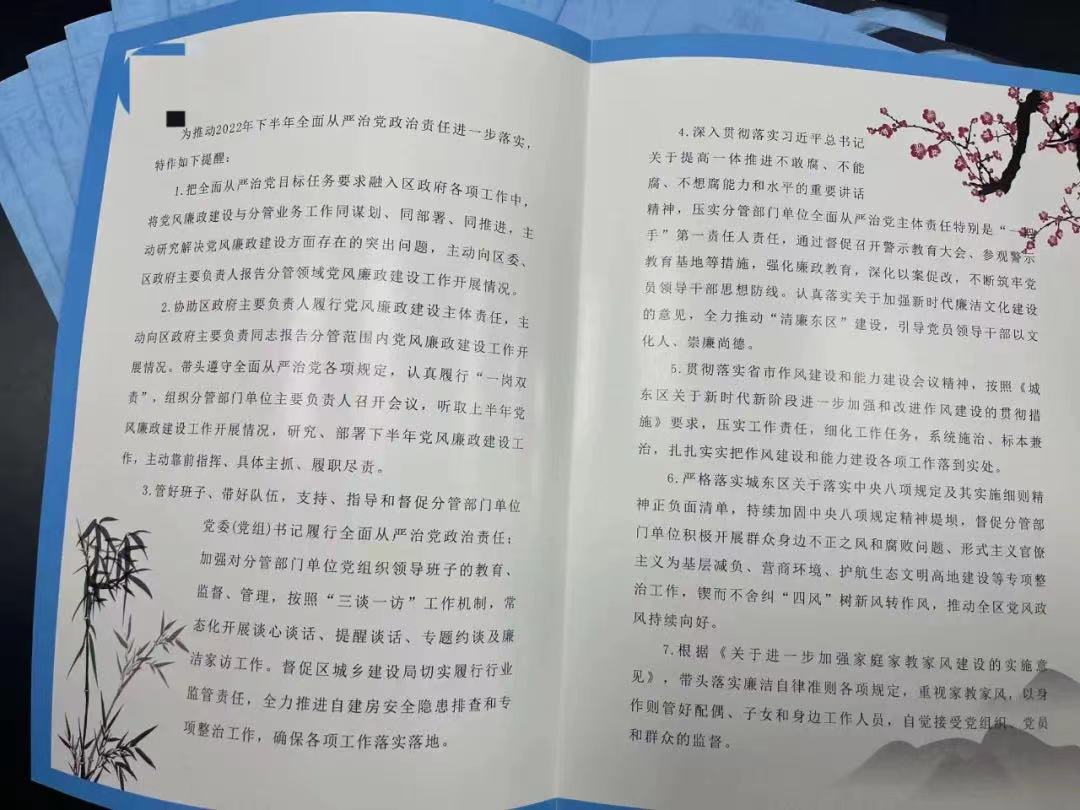 为推动2022年下半年全面从严治党政治责任进一步落实,
特作如下提醒:
1.把全面从严治党目标任务要求融入区政府各项工作中,
将党风廉政建设与分管业务工作同谋划、同部署、同推进,主
动研究解决党风廉政建设方面存在的突出问题,主动向区委、
区政府主要负责人报告分管领域党风廉政建设工作开展情况。
2.协助区政府主要负责人履行党风廉政建设主体责任,主
动向区政府主要负责同志报告分管范围内党风廉政建设工作开
展情况。带头遵守全面从严治党各项规定,认真履行“一岗双
责”,组织分管部门单位主要负责人召开会议,听取上半年党
风廉政建设工作开展情况,研究、部署下半年党风廉政建设工
作,主动靠前指挥、具体主抓、履职尽责。
3.管好班子、带好队伍,支持、指导和督促分管部门单位
党委(党组)书记履行全面从严治党政治责任;
加强对分管部门单位党组织领导班子的教育、
监督、管理,按照“三谈一访”工作机制,常
态化开展谈心谈话、提醒谈话、专题约谈及廉
洁家访工作。督促区城乡建设局切实履行行业
监管责任,全力推进自建房安全隐患排查和专
项整治工作,确保各项工作落实落地。
4.深入贯彻落实习近平总书记
关于提高一体推进不敢腐、不能
腐、不想腐能力和水平的重要讲话
精神,压实分管部门单位全面从严治党主体责任特别是“一把
手”第一责任人责任,通过督促召开警示教育大会、参观警示
教育基地等措施,强化廉政教育,深化以案促改,不断筑牢党
员领导干部思想防线。认真落实关于加强新时代廉洁文化建设
的意见,全力推动“清廉东区”建设,引导党员领导干部以文
化人、崇廉尚德。
5.贯彻落实省市作风建设和能力建设会议精神,按照《城
东区关于新时代新阶段进一步加强和改进作风建设的贯彻措
施》要求,压实工作责任,细化工作任务,系统施治、标本兼
治,扎扎实实把作风建设和能力建设各项工作落到实处。
6.严格落实城东区关于落实中央八项规定及其实施细则精
神正负面清单,持续加固中央八项规定精神堤坝,督促分管部
门单位积极开展群众身边不正之风和腐败问题、形式主义官僚
主义为基层减负、营商环境、护航生态文明高地建设等专项整
治工作,锲而不舍纠“四风”树新风转作风,推动全区党风政
风持续向好。
7.根据《关于进一步加强家庭家教家风建设的实施意
见》,带头落实廉洁自律准则各项规定,重视家教家风,以身
作则管好配偶、子女和身边工作人员,自觉接受党组织、党员
和群众的监督。